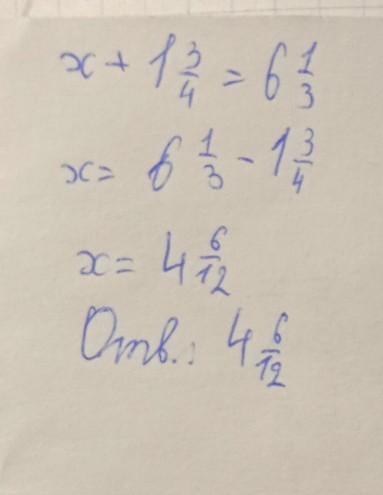 x + 1 3/4 = 6 1/3
x = 6 1/3 - 1 3/4
x = 4 6/12
Отв.: 4 6/12